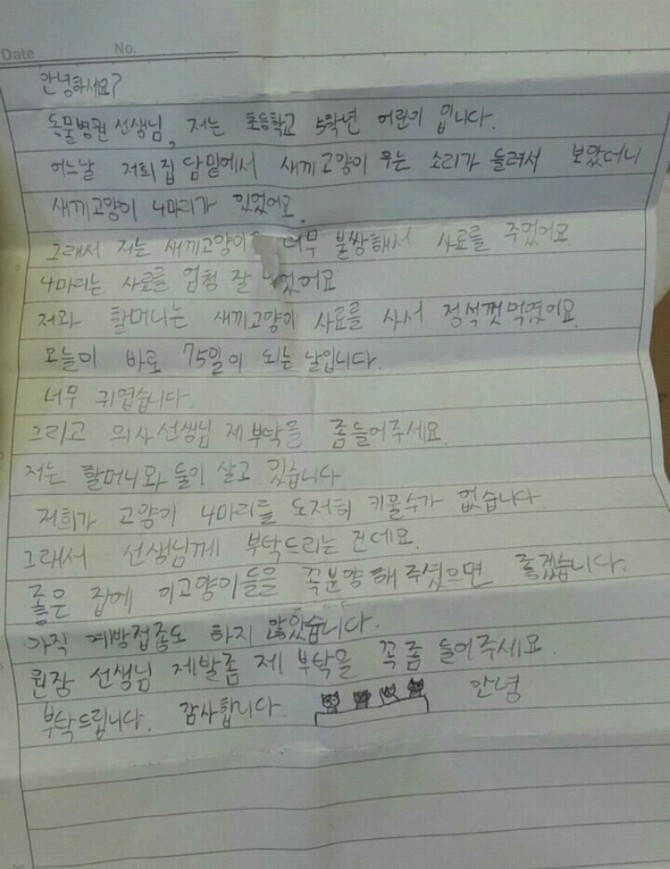 Date No.
안녕하세요?
동물병원 선생님, 저는 초등학교 5학년 어린이 입니다.
어느날 저희집 담밑에서 새끼고양이 우는 소리가 들려서 보았더니
새끼고양이 4마리가 있었어요.
그래서 저는 새끼고양이 너무 불쌍해서 사료를 주었어요
4마리는 사료를 엄청 잘 었어요
저와 할머니는 새끼고양이 사료를 사서 정석껏먹였어요.
오늘이 바로 75일이 되는 날입니다.
너무 귀엽습니다.
그리고 의사선생님 제부탁을 좀들어주세요.
저는 할머니와 둘이 살고 있습니다
저희가 고양이 4마리를 도저히 키울수가 없습니다.
그래서 선생님께 부탁드리는 건데요.
좋은 집에 이고양이들을 꼭분양해주셨으면 좋겠습니다.
아직 예방접종도 하지 않았습니다.
원장 선생님 제발좀 제 부탁을 꼭좀 들어주세요.
부탁드립니다. 감사합니다. 안녕